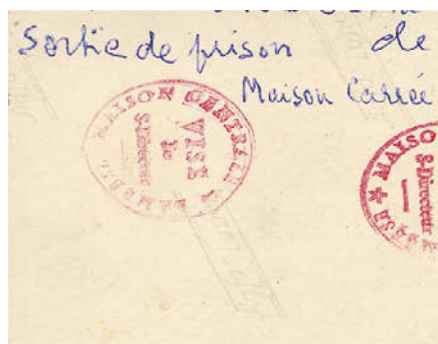 Sortie de prison de
Maison Carrée
MAISON CENTRALE
VISÉ
Le
S-Directeur
MAISO
S-Directeur